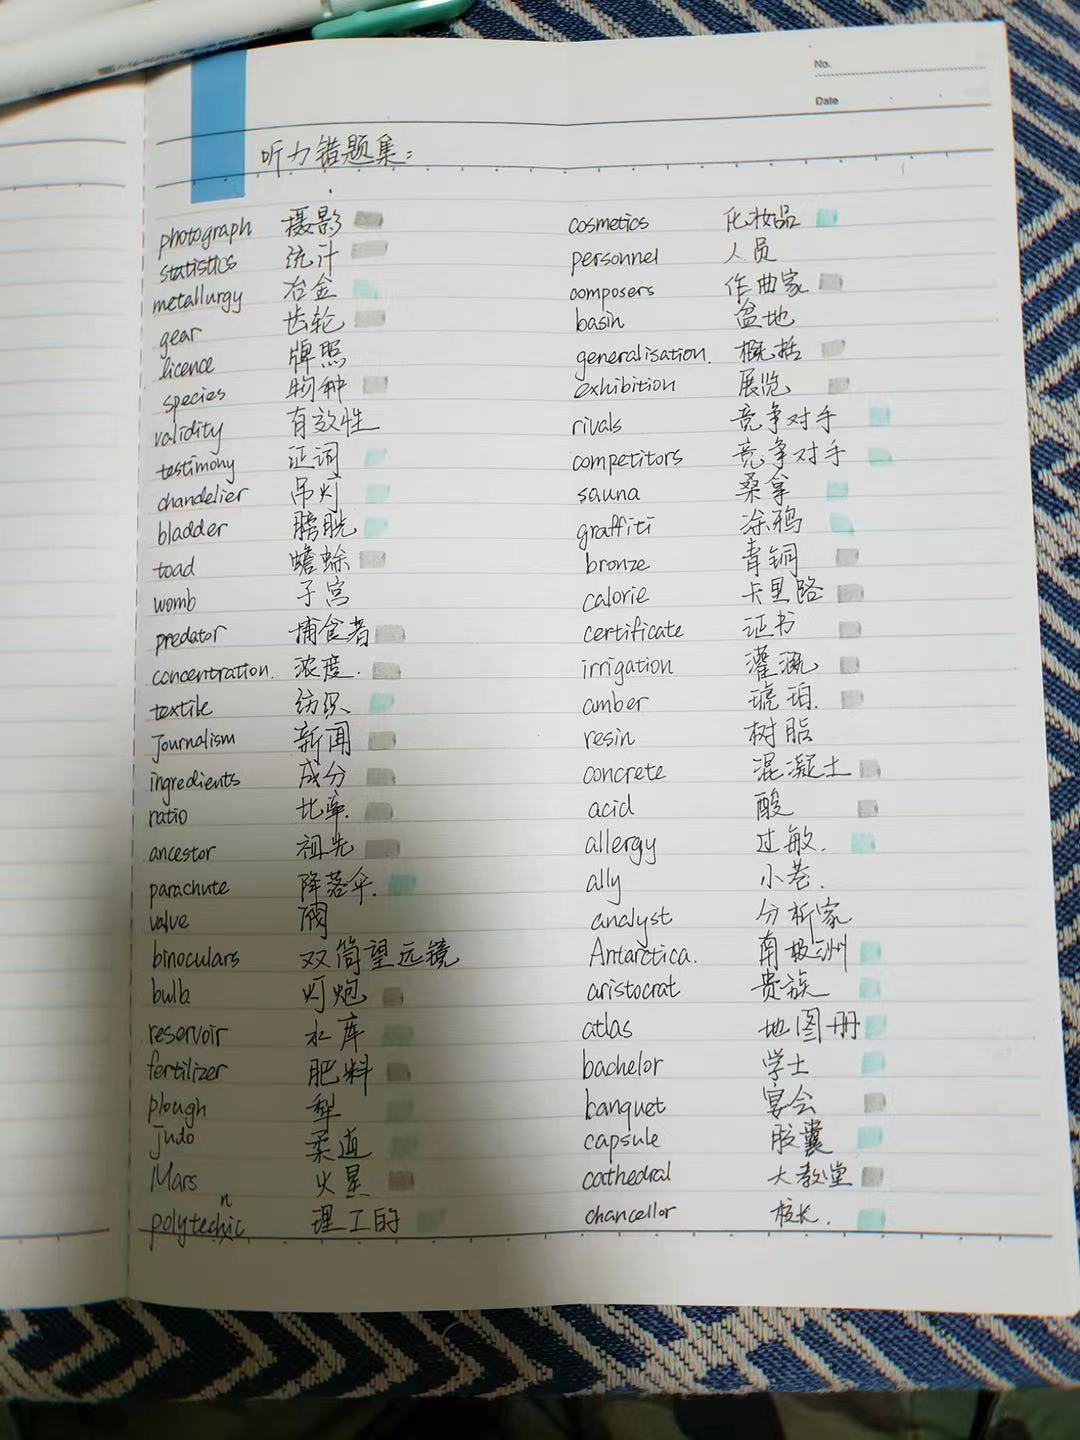 No.
Date
听力错题集:
photograph 摄影
statistics 统计
metallurgy 冶金
gear 齿轮
licence 牌照
species 物种
validity 有效性
testimony 证词
chandelier 吊灯
bladder 膀胱
toad 蟾蜍
womb 子宫
predator 捕食者
concentration. 浓度.
textile 纺织
journalism 新闻
ingredients 成分
ratio 比率.
ancestor 祖先
parachute 降落伞.
valve 阀
binoculars 双筒望远镜
bulb 灯炮
reservoir 水库
fertilizer 肥料
plough 犁
judo 柔道
Mars 火星
polytechnic 理工的
cosmetics 化妆品
personnel 人员
composers 作曲家
basin 盆地
generalisation. 概括
exhibition 展览
rivals 竞争对手
competitors 竞争对手
sauna 桑拿
graffiti 涂鸦
bronze 青铜
calorie 卡里路
certificate 证书
irrigation 灌溉
amber 琥珀.
resin 树脂
concrete 混凝土
acid 酸
allergy 过敏.
ally 小巷.
analyst 分析家
Antarctica. 南极洲
aristocrat 贵族
atlas 地图册
bachelor 学士
banquet 宴会
capsule 胶囊
cathedral 大教堂
chancellor 校长.